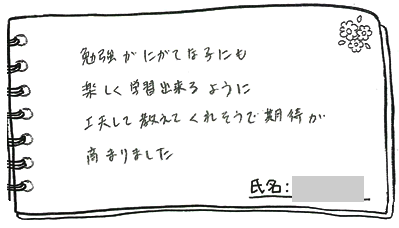 勉強がにがてな子にも
楽しく学習出来るように
工夫して教えてくれそうで期待が
高まりました
氏名: